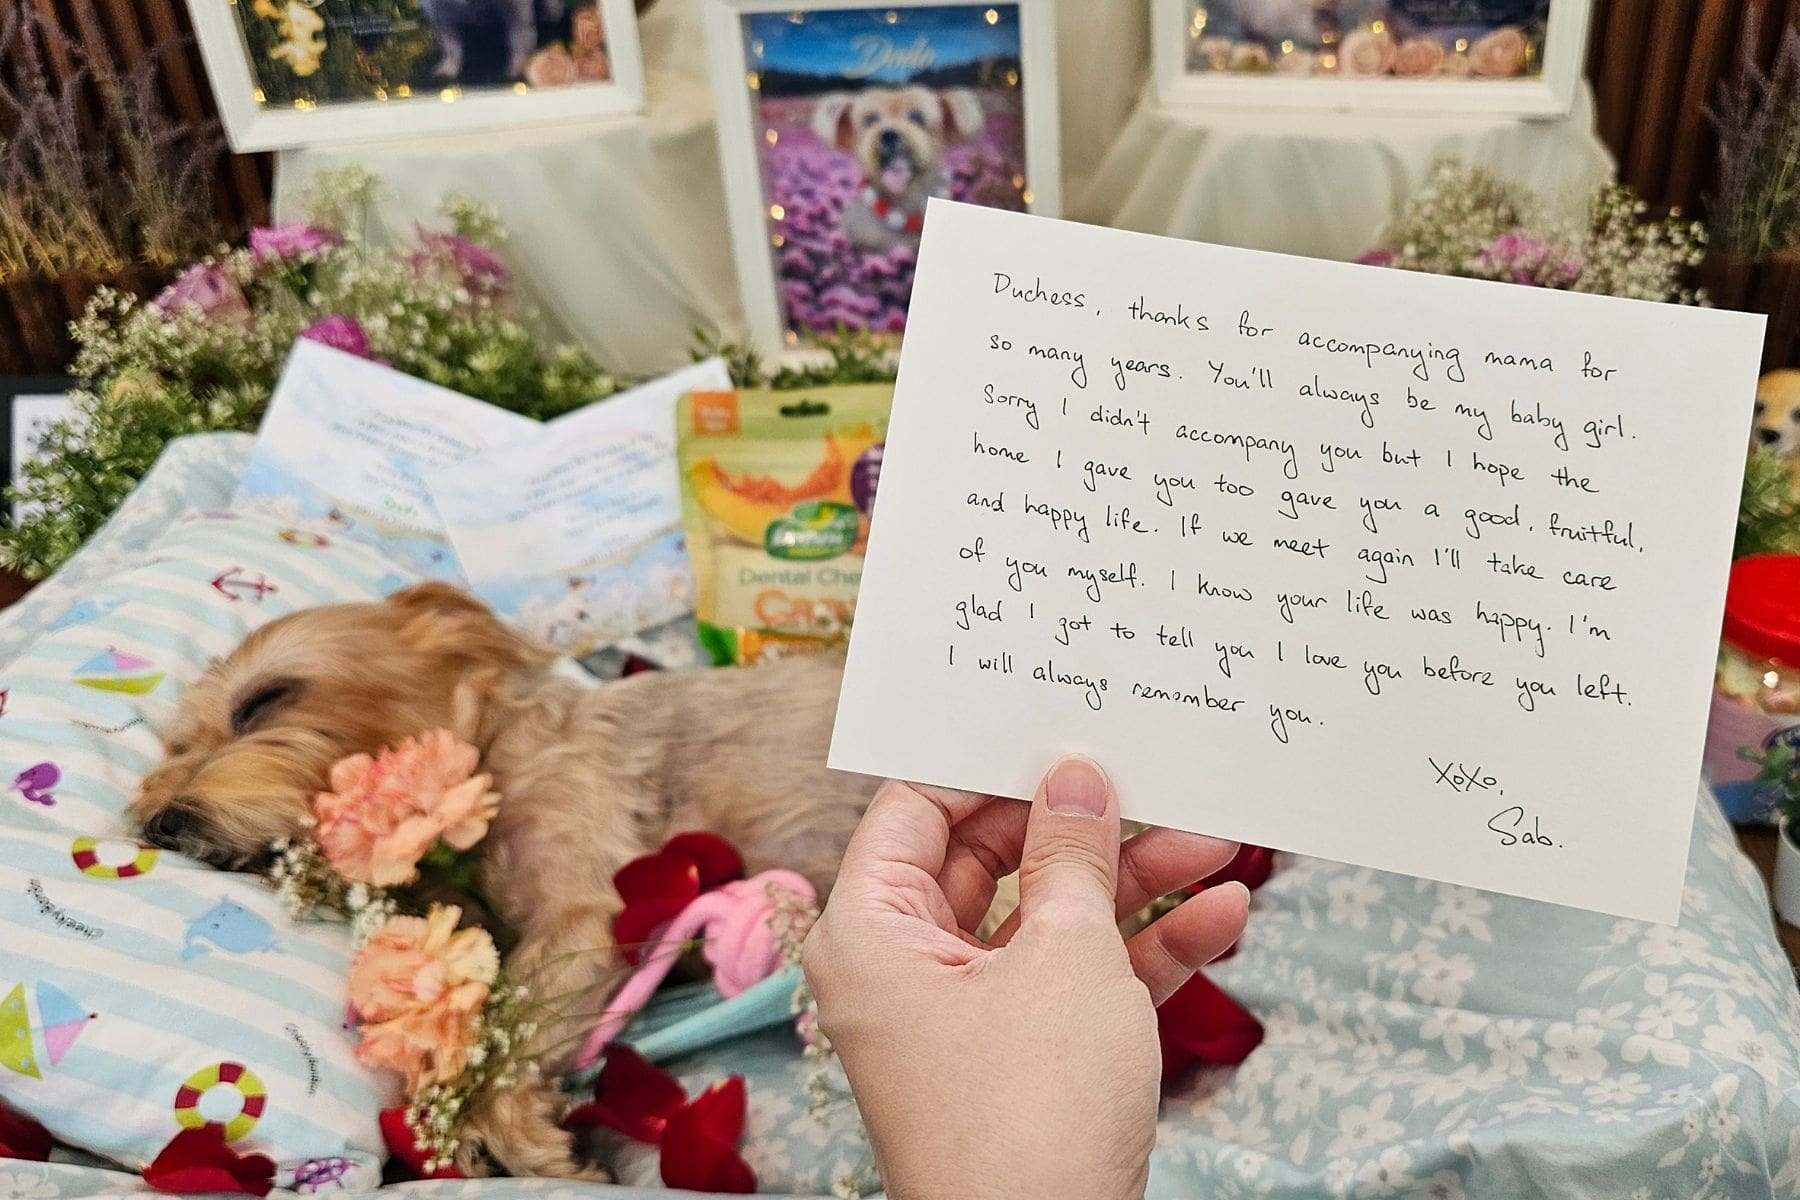 Dodo
Duchess, thanks for accompanying mama for
so many years. You'll always be my baby girl.
Sorry I didn't accompany you but I hope the
home I gave you too gave you a good, fruitful,
and happy life. If we meet again I'll take care
of you myself. I know your life was happy. I'm
glad I got to tell you I love you before you left.
I will always remember you.
XoXo,
Sab.
Dental